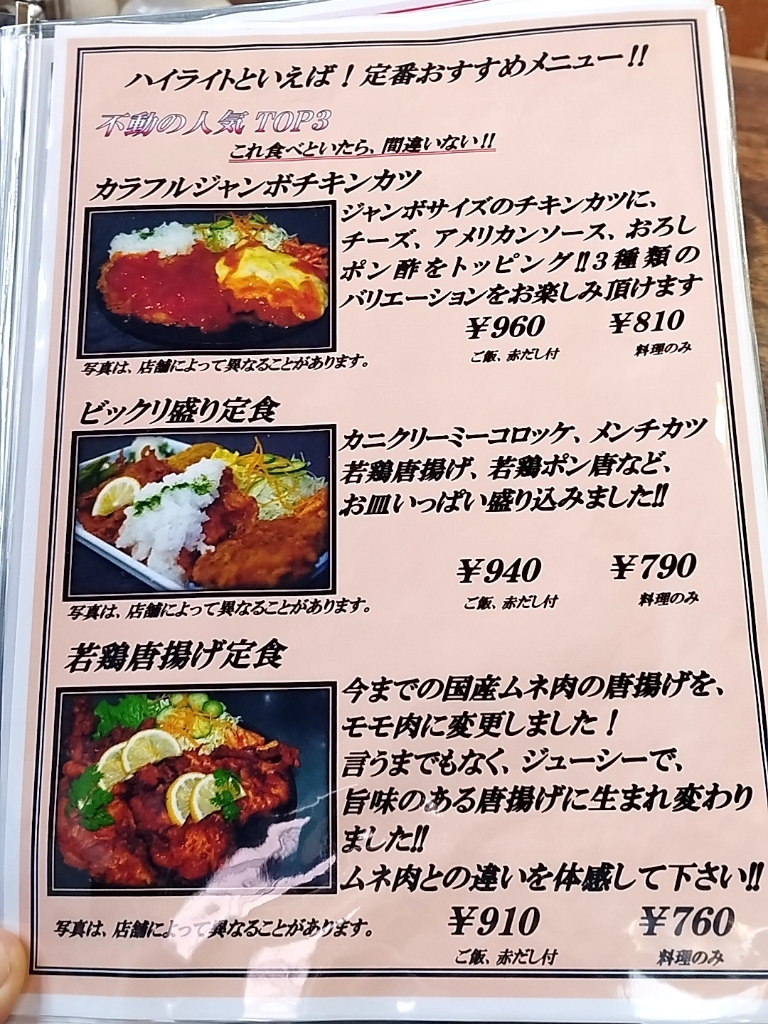 ハイライトといえば!定番おすすめメニュー!!
不動の人気 TOP3
これ食べといたら、間違いない!!
カラフルジャンボチキンカツ
ジャンボサイズのチキンカツに、
チーズ、アメリカンソース、おろし
ポン酢をトッピング!!3種類の
バリエーションをお楽しみ頂けます
¥960 ¥810
ご飯、赤だし付 料理のみ
写真は、店舗によって異なることがあります。
ビックリ盛り定食
カニクリーミーコロッケ、メンチカツ
若鶏唐揚げ、若鶏ポン唐など、
お皿いっぱい盛り込みました!!
¥940 ¥790
ご飯、赤だし付 料理のみ
写真は、店舗によって異なることがあります。
若鶏唐揚げ定食
今までの国産ムネ肉の唐揚げを、
モモ肉に変更しました!
言うまでもなく、ジューシーで、
旨味のある唐揚げに生まれ変わり
ました!!
ムネ肉との違いを体感して下さい!!
¥910 ¥760
ご飯、赤だし付 料理のみ
写真は、店舗によって異なることがあります。